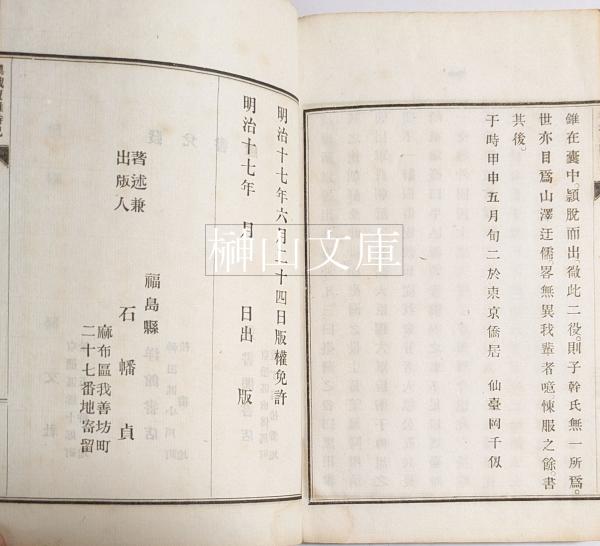 錐在囊中。頴脫而出。微此二役。則子幹氏無一所爲。
世亦目爲山澤迂儒。畧無異我輩者。噫悚服之餘。書
其後。
于時甲申五月旬二於東京僑居 仙臺岡千仭
明治十七年六月二十四日版權免許
明治十七年 月 日出版
著述兼
出版人
福島縣
石幡貞
麻布區我善坊町
二十七番地寄留
榊山文庫